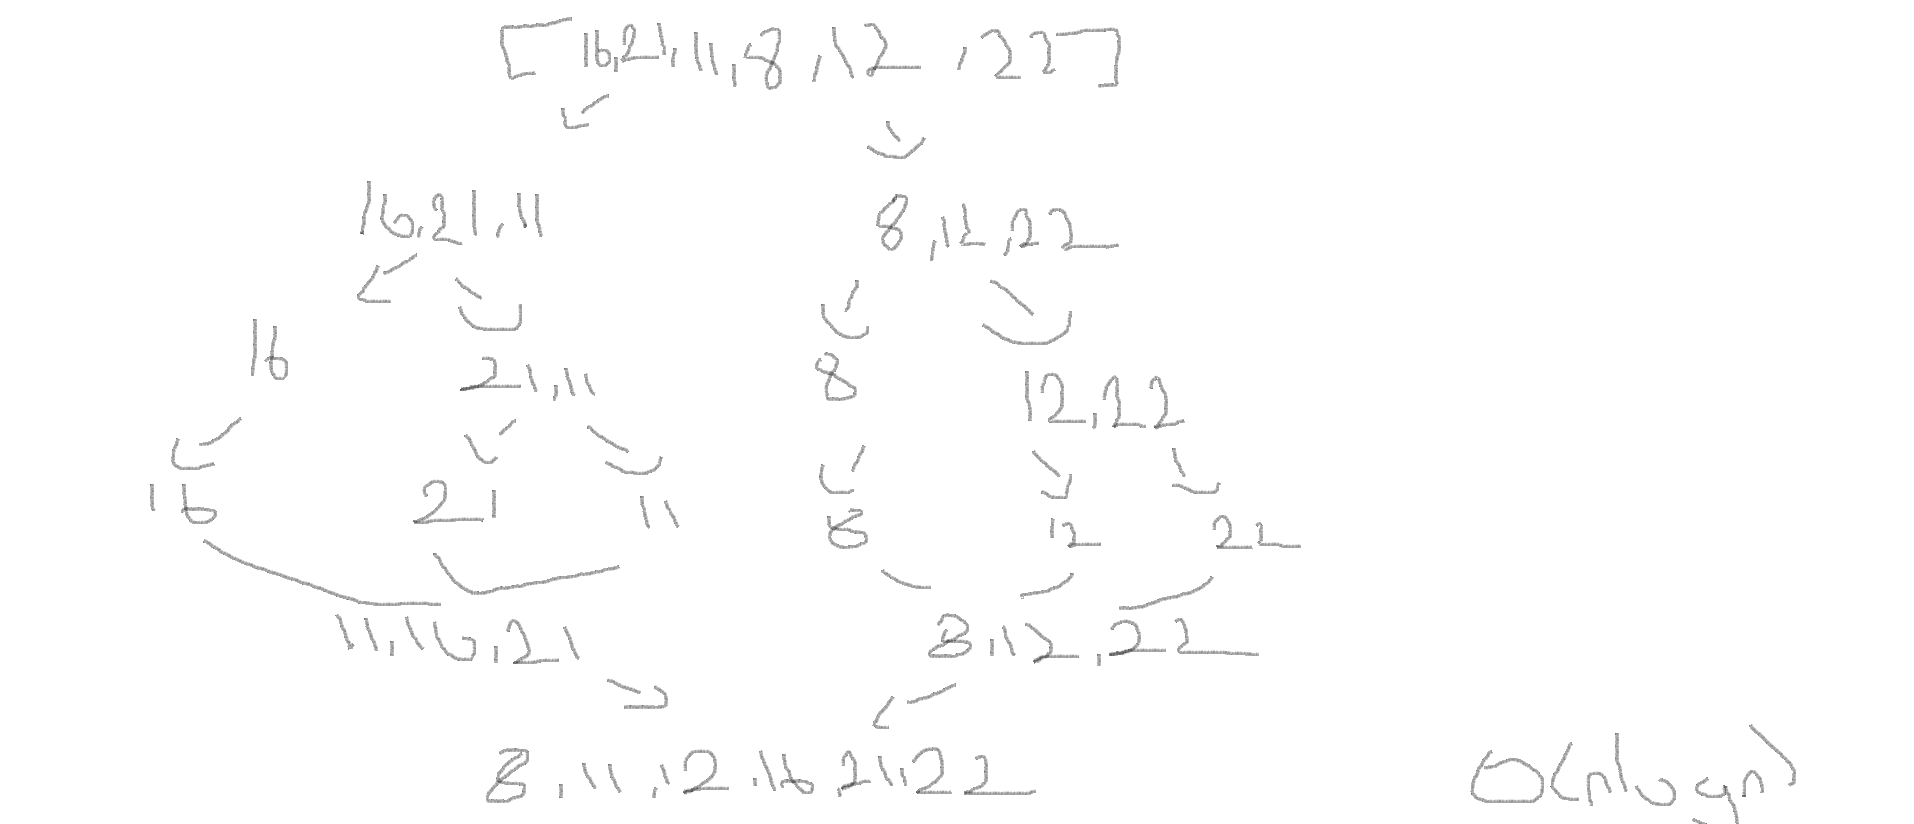 [16,21,11,8,12,22]
16,21,11 8,12,22
16 21,11 8 12,22
16 21 11 8 12 22
11,16,21 8,12,22
8,11,12,16,21,22
O(nlogn)